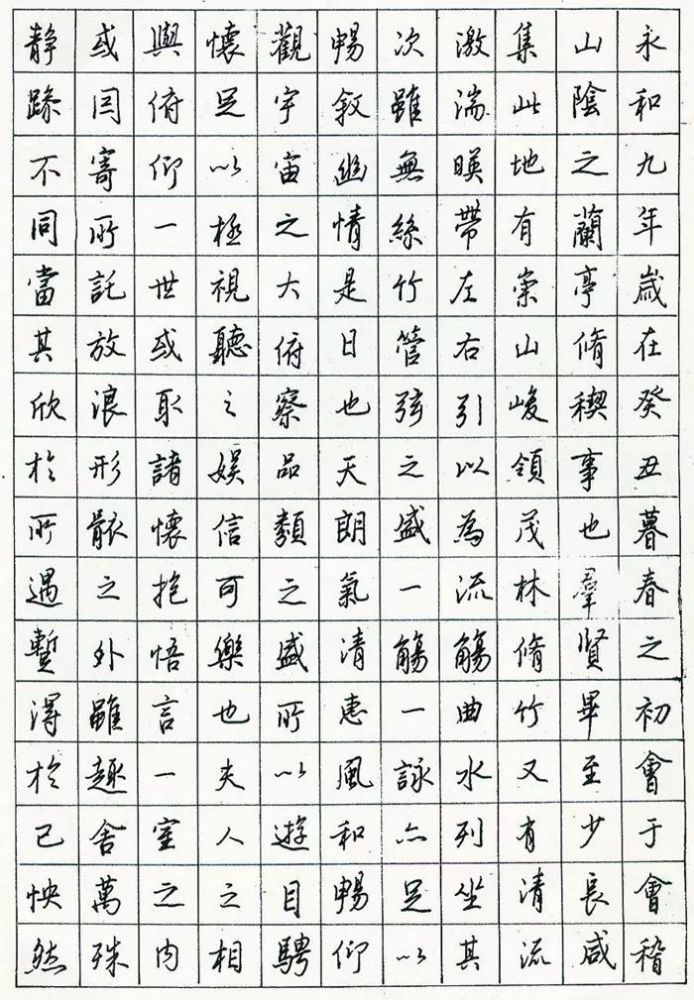 永和九年歲在癸丑暮春之初會于會稽
山陰之蘭亭脩稧事也羣賢畢至少長咸
集此地有崇山峻領茂林脩竹又有清流
激湍暎帶左右引以為流觴曲水列坐其
次雖無絲竹管弦之盛一觴一詠亦足以
暢敘幽情是日也天朗氣清惠風和暢仰
觀宇宙之大俯察品類之盛所以遊目騁
懷足以極視聽之娛信可樂也夫人之相
與俯仰一世或取諸懷抱悟言一室之內
或因寄所託放浪形骸之外雖趣舍萬殊
靜躁不同當其欣於所遇暫得於己怏然